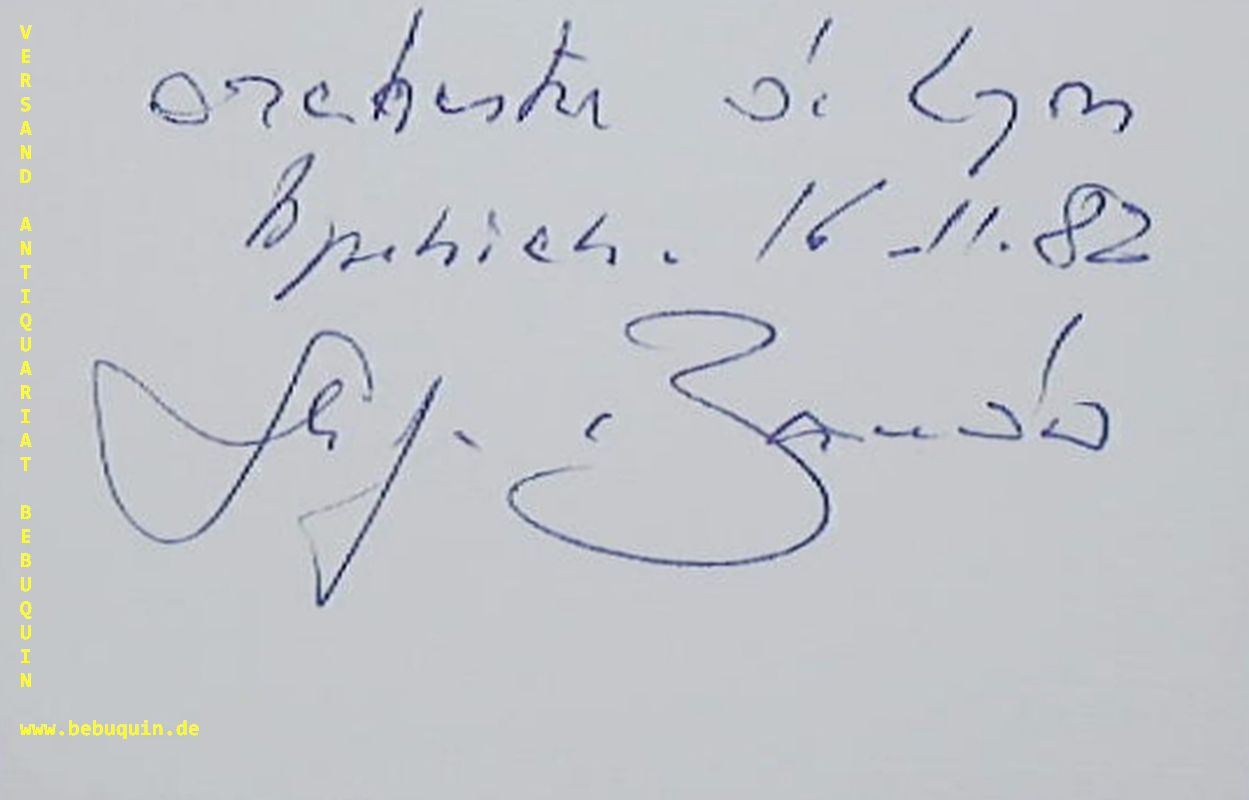 orchester de Lyon
16-11.82
Serge Baudo
VERSAND ANTIQUARIAT BEBUQUIN
www.bebuquin.de